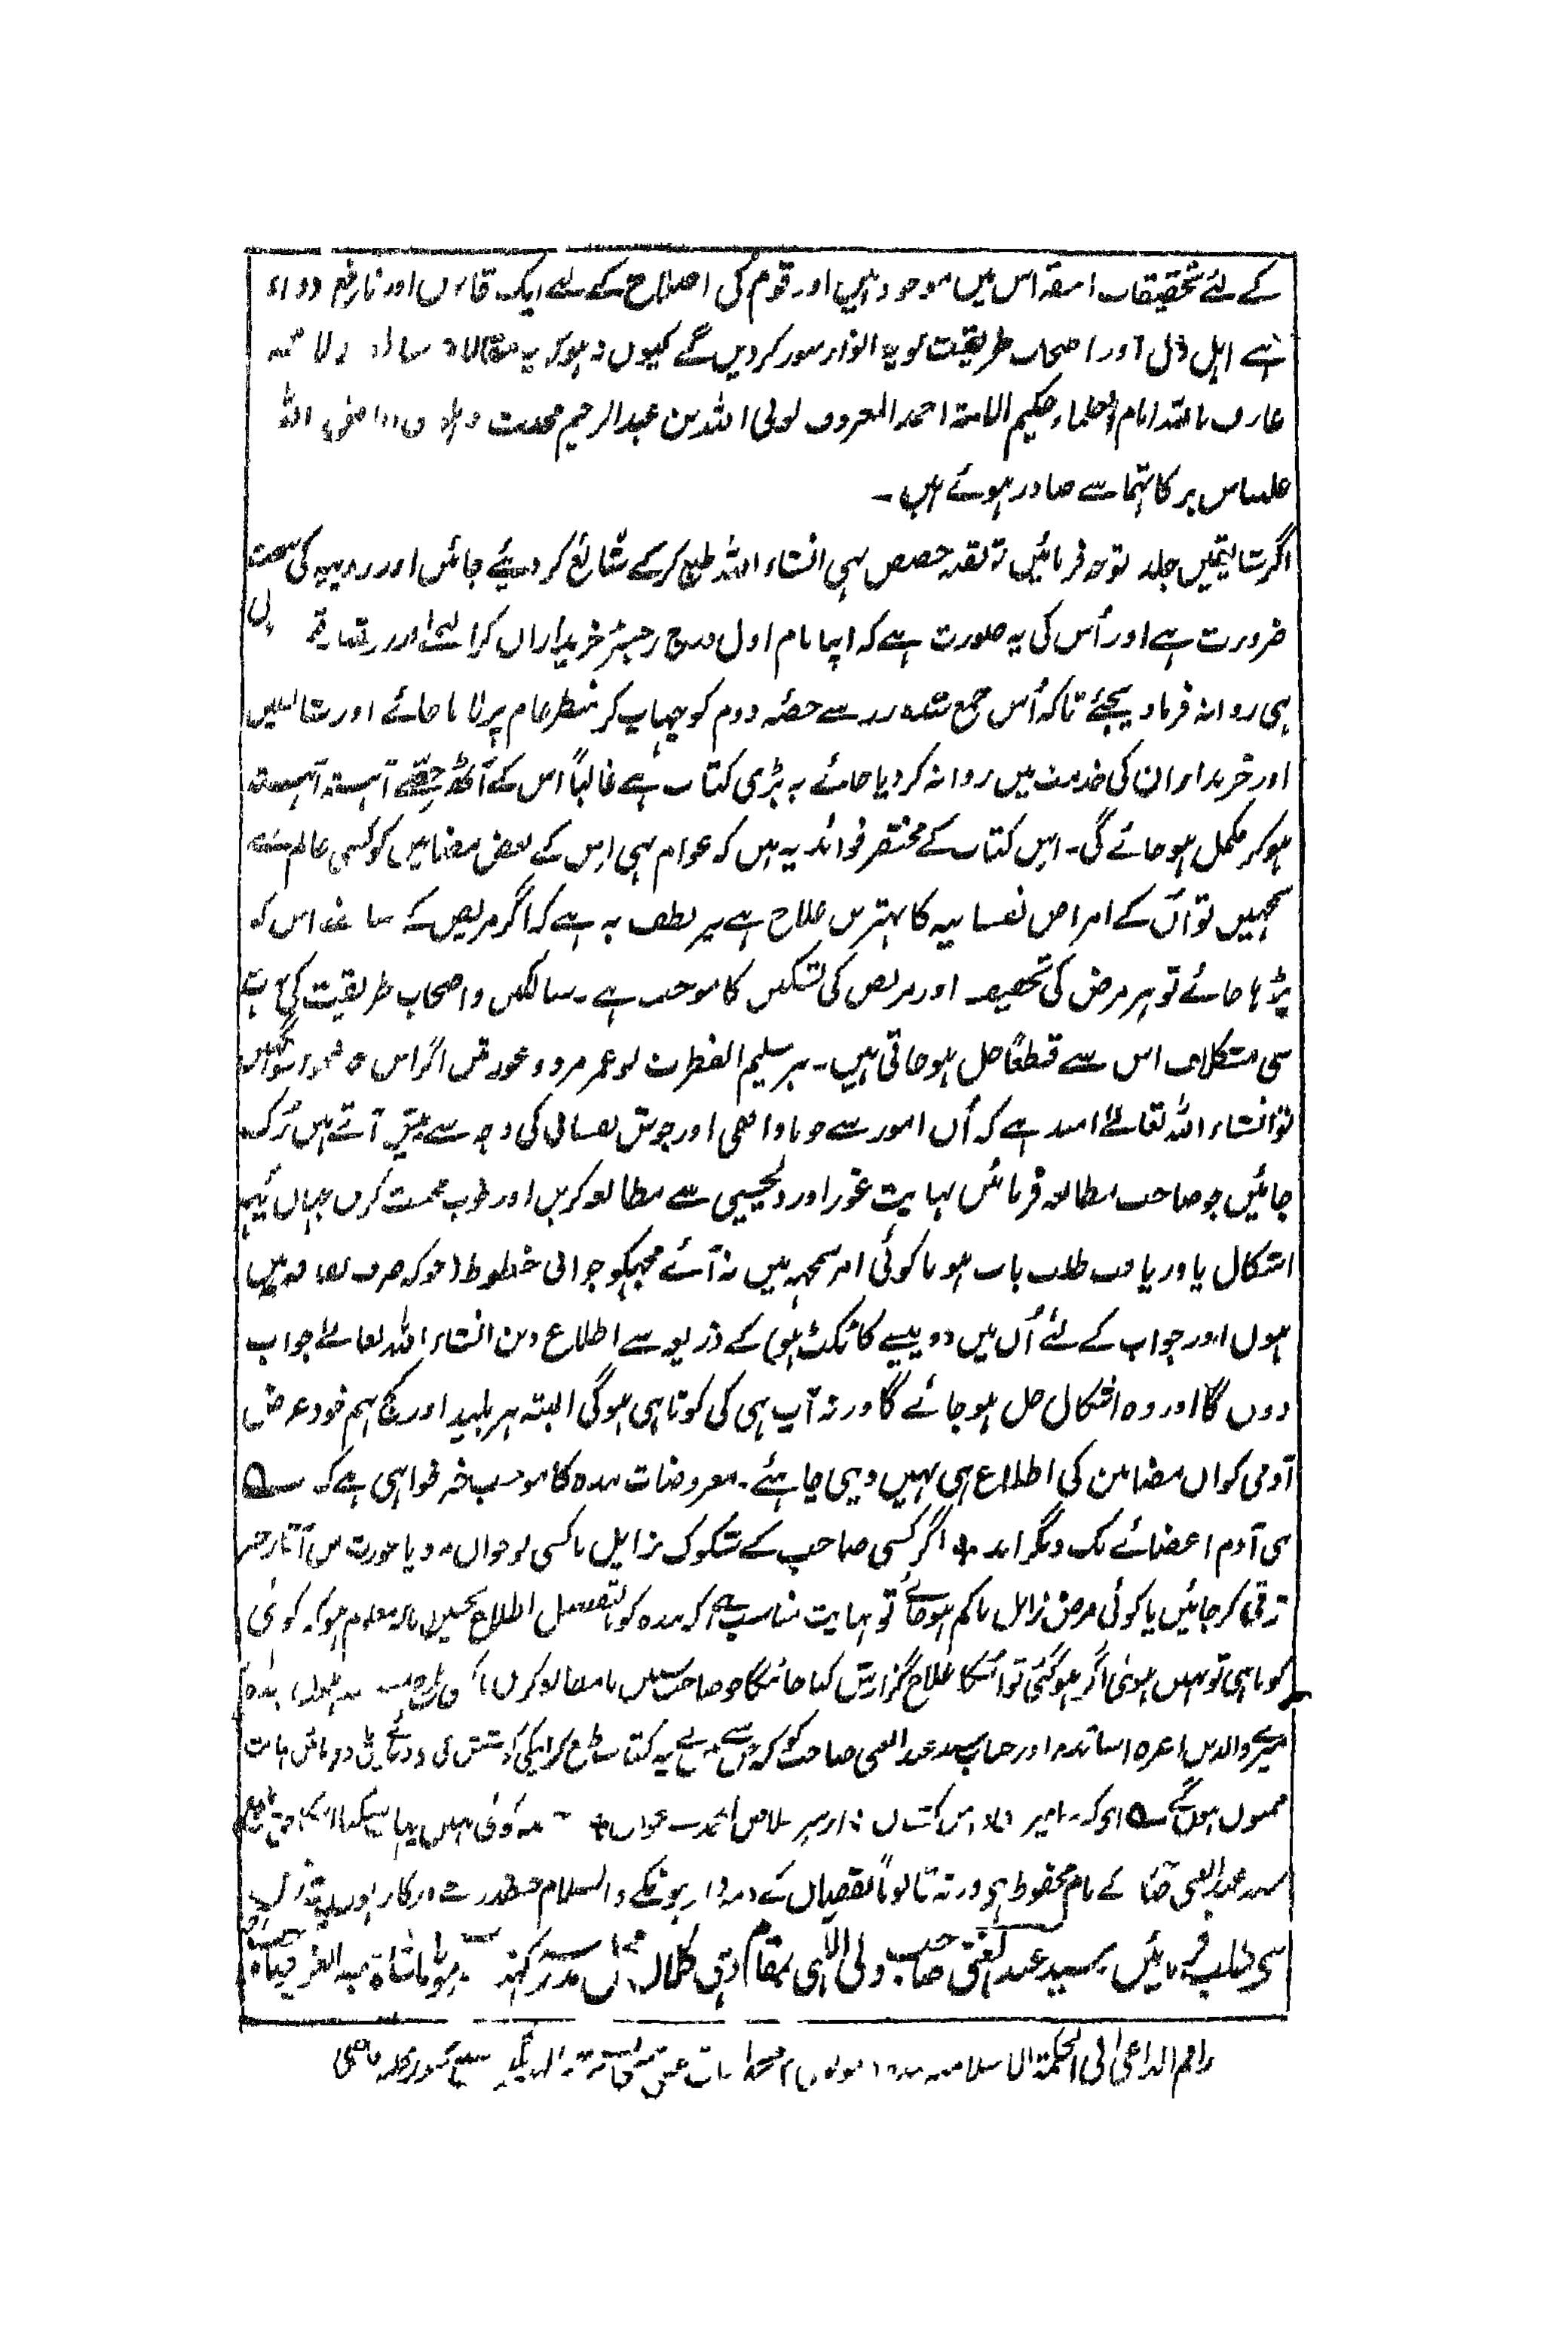 کے لئے تحقیقات انیقہ اس میں موجود ہیں اور قوم کی اصلاح کے لئے ایک قانون اور نافع دواء
ہے اہل دل اور اصحاب طریقت کو یہ انوار مسرور کر دیں گے کیوں نہ ہو کہ یہ مقالات
عارف باللہ امام العلماء حکیم الامۃ احمد المعروف بولی اللہ بن عبد الرحیم محدث دہلوی اللہ
علینا من برکاتہما سے صادر ہوئے ہیں۔
اگر شایقین جلد توجہ فرمائیں تو بقیہ حصص بھی انشاء اللہ طبع کر کے شائع کر دیئے جائیں اور روپیہ کی سخت
ضرورت ہے اور اُس کی یہ صورت ہے کہ اپنا نام اول درج رجسٹر خریداران کرا لیجئے اور
ہی روانہ فرما دیجئے تاکہ اُس جمع شدہ زر سے حصہ دوم کو چھاپ کر منظر عام پر لایا جائے اور شایقین
اور خریداران کی خدمت میں روانہ کر دیا جائے یہ بڑی کتاب ہے غالباً اس کے آٹھ حصے آہستہ آہستہ
ہو کر مکمل ہو جائے گی۔ اس کتاب کے مختصر فوائد یہ ہیں کہ عوام بھی اس کے بعض مضامین کو کسی عالم سے
سمجہیں تو اُن کے امراض نفسانیہ کا بہترین علاج ہے پر لطف یہ ہے کہ اگر مریض کے سامنے اس کو
پڑھا جائے تو ہر مرض کی تخفیف اور مریض کی تسکین کا موجب ہے۔ سالکین و اصحاب طریقت کی بہت
سی مشکلات اس سے قطعاً حل ہو جاتی ہیں۔ ہر سلیم الفطرت نو عمر مرد و عورتیں اگر اس
تو انشاء اللہ تعالےٰ امید ہے کہ اُن امور سے جو ناواقفی اور جوش نفسانی کی وجہ سے پیش آتے ہیں رُک
جائیں جو صاحب مطالعہ فرمائیں نہایت غور اور دلچسپی سے مطالعہ کریں اور خوب محنت کریں جہاں کہیں
اشکال یا دریافت طلب بات ہو یا کوئی امر سمجہہ میں نہ آئے مجہکو جوابی خطوط (جو کہ صرف لفافہ میں
ہوں اور جواب کے لئے اُن میں دو پیسے کا ٹکٹ ہو) کے ذریعہ سے اطلاع دیں انشاء اللہ تعالےٰ جواب
دوں گا اور وہ اشکال حل ہو جائے گا ورنہ آپ ہی کی کوتاہی ہوگی البتہ ہر بلید اور کج فہم خود غرض
آدمی کو ان مضامین کی اطلاع ہی نہیں دینی چاہئے۔ معروضات بندہ کا موجب خیر خواہی ہے کہ ؎
بنی آدم اعضائے یک دیگر اند ٭ اگر کسی صاحب کے شکوک زایل یا کسی نوجوان مرد یا عورت میں آثار خیر
ترقی کر جائیں یا کوئی مرض زائل یا کم ہو جائے تو نہایت مناسب ہے کہ بندہ کو بتفصیل اطلاع بخشیں تاکہ معلوم ہو کہ کوئی
کوتاہی تو نہیں ہوئی اگر ہو گئی تو اُسکا علاج گزارش کیا جائیگا جو صاحب سنیں یا مطالعہ کریں
میرے والدین اعزہ اساتذہ اور جناب سید عبد الغنی صاحب کو کہ جس نے یہ کتاب طبع کرانیکی کوشش کی
ممنون ہوں گے کوئی نہیں چھاپ سکتا اسکا حق طبع
سید عبد الغنی صاحب کے نام محفوظ ہے ورنہ قانوناً نقصان کے ذمہ دار ہونگے والسلام
سی طلب فرمائیں سید عبد الغنی صاحب ولی اللٰہی بمقام دہلی کلاں محل مدرسہ کہنہ مولانا شاہ عبد العزیز صاحب
راقم الداعی الی الحکمۃ الاسلامیہ